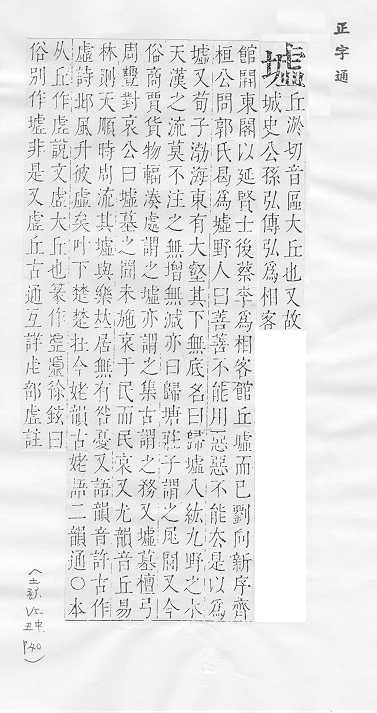 正字通
墟
丘淤切音區大丘也又故
城史公孫弘傳弘爲相客
館開東閣以延賢士後蔡李爲相客館丘墟而已劉向新序齊
桓公問郭氏曷爲墟野人曰善善不能用惡惡不能去是以爲
墟又荀子渤海東有大壑其下無底名曰歸墟八紘九野之水
天漢之流莫不注之無增無減亦曰歸塘莊子謂之尾閭又今
俗商賈貨物輻湊處謂之墟亦謂之集古謂之務又墟墓檀弓
周豐對哀公曰墟墓之閒未施哀于民而民哀又尤韻音丘易
林測天順時周流其墟與樂𠀤居無有咎憂又語韻音許古作
虛詩邶風升彼虛矣叶下楚楚在今姥韻古姥語二韻通○本
从丘作虛說文虛大丘也篆作徐鉉曰
俗別作墟非是又虛丘古通互詳虍部虛註
(土部. 丑中. P.40)